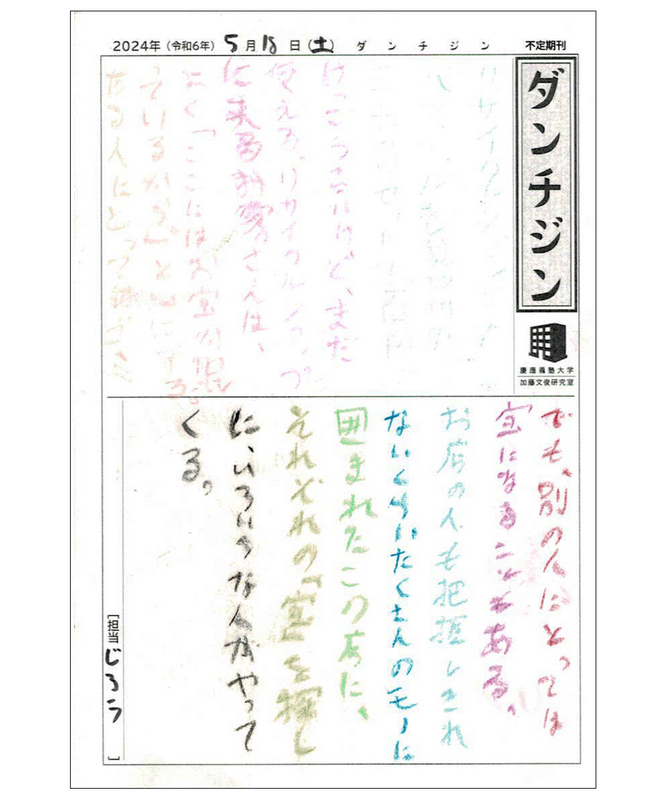 2024年(令和6年) 5月18日(土) ダンチジン 不定期刊
ダンチジン
慶應義塾大学
加藤文俊研究室
リサイクルショップ
けっこう古いけど、まだ
使える。リサイクルショップ
に来るお客さんは、
よく「ここにはお宝が眠
っているから」と
ある人にとってはゴミ
でも、別の人にとっては
宝になることもある。
お店の人も把握しきれ
ないくらいたくさんのモノに
囲まれたこの店に、
それぞれの「宝」を探し
に、いろいろな人がやって
くる。
[担当 じろう]